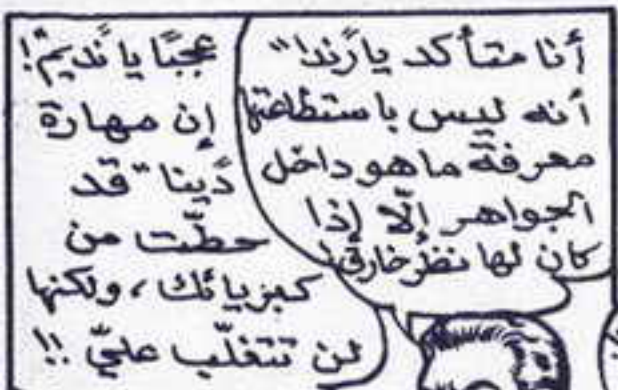 أنا متأكد يا "رندا"
أنه ليس باستطاعتها
معرفة ما هو داخل
الجواهر إلّا إذا
كان لها نظر خارق!
عجبًا يا "نديم"!
إن مهارة
"دينا" قد
حطّت من
كبريائك، ولكنها
لن تتغلّب عليّ !!